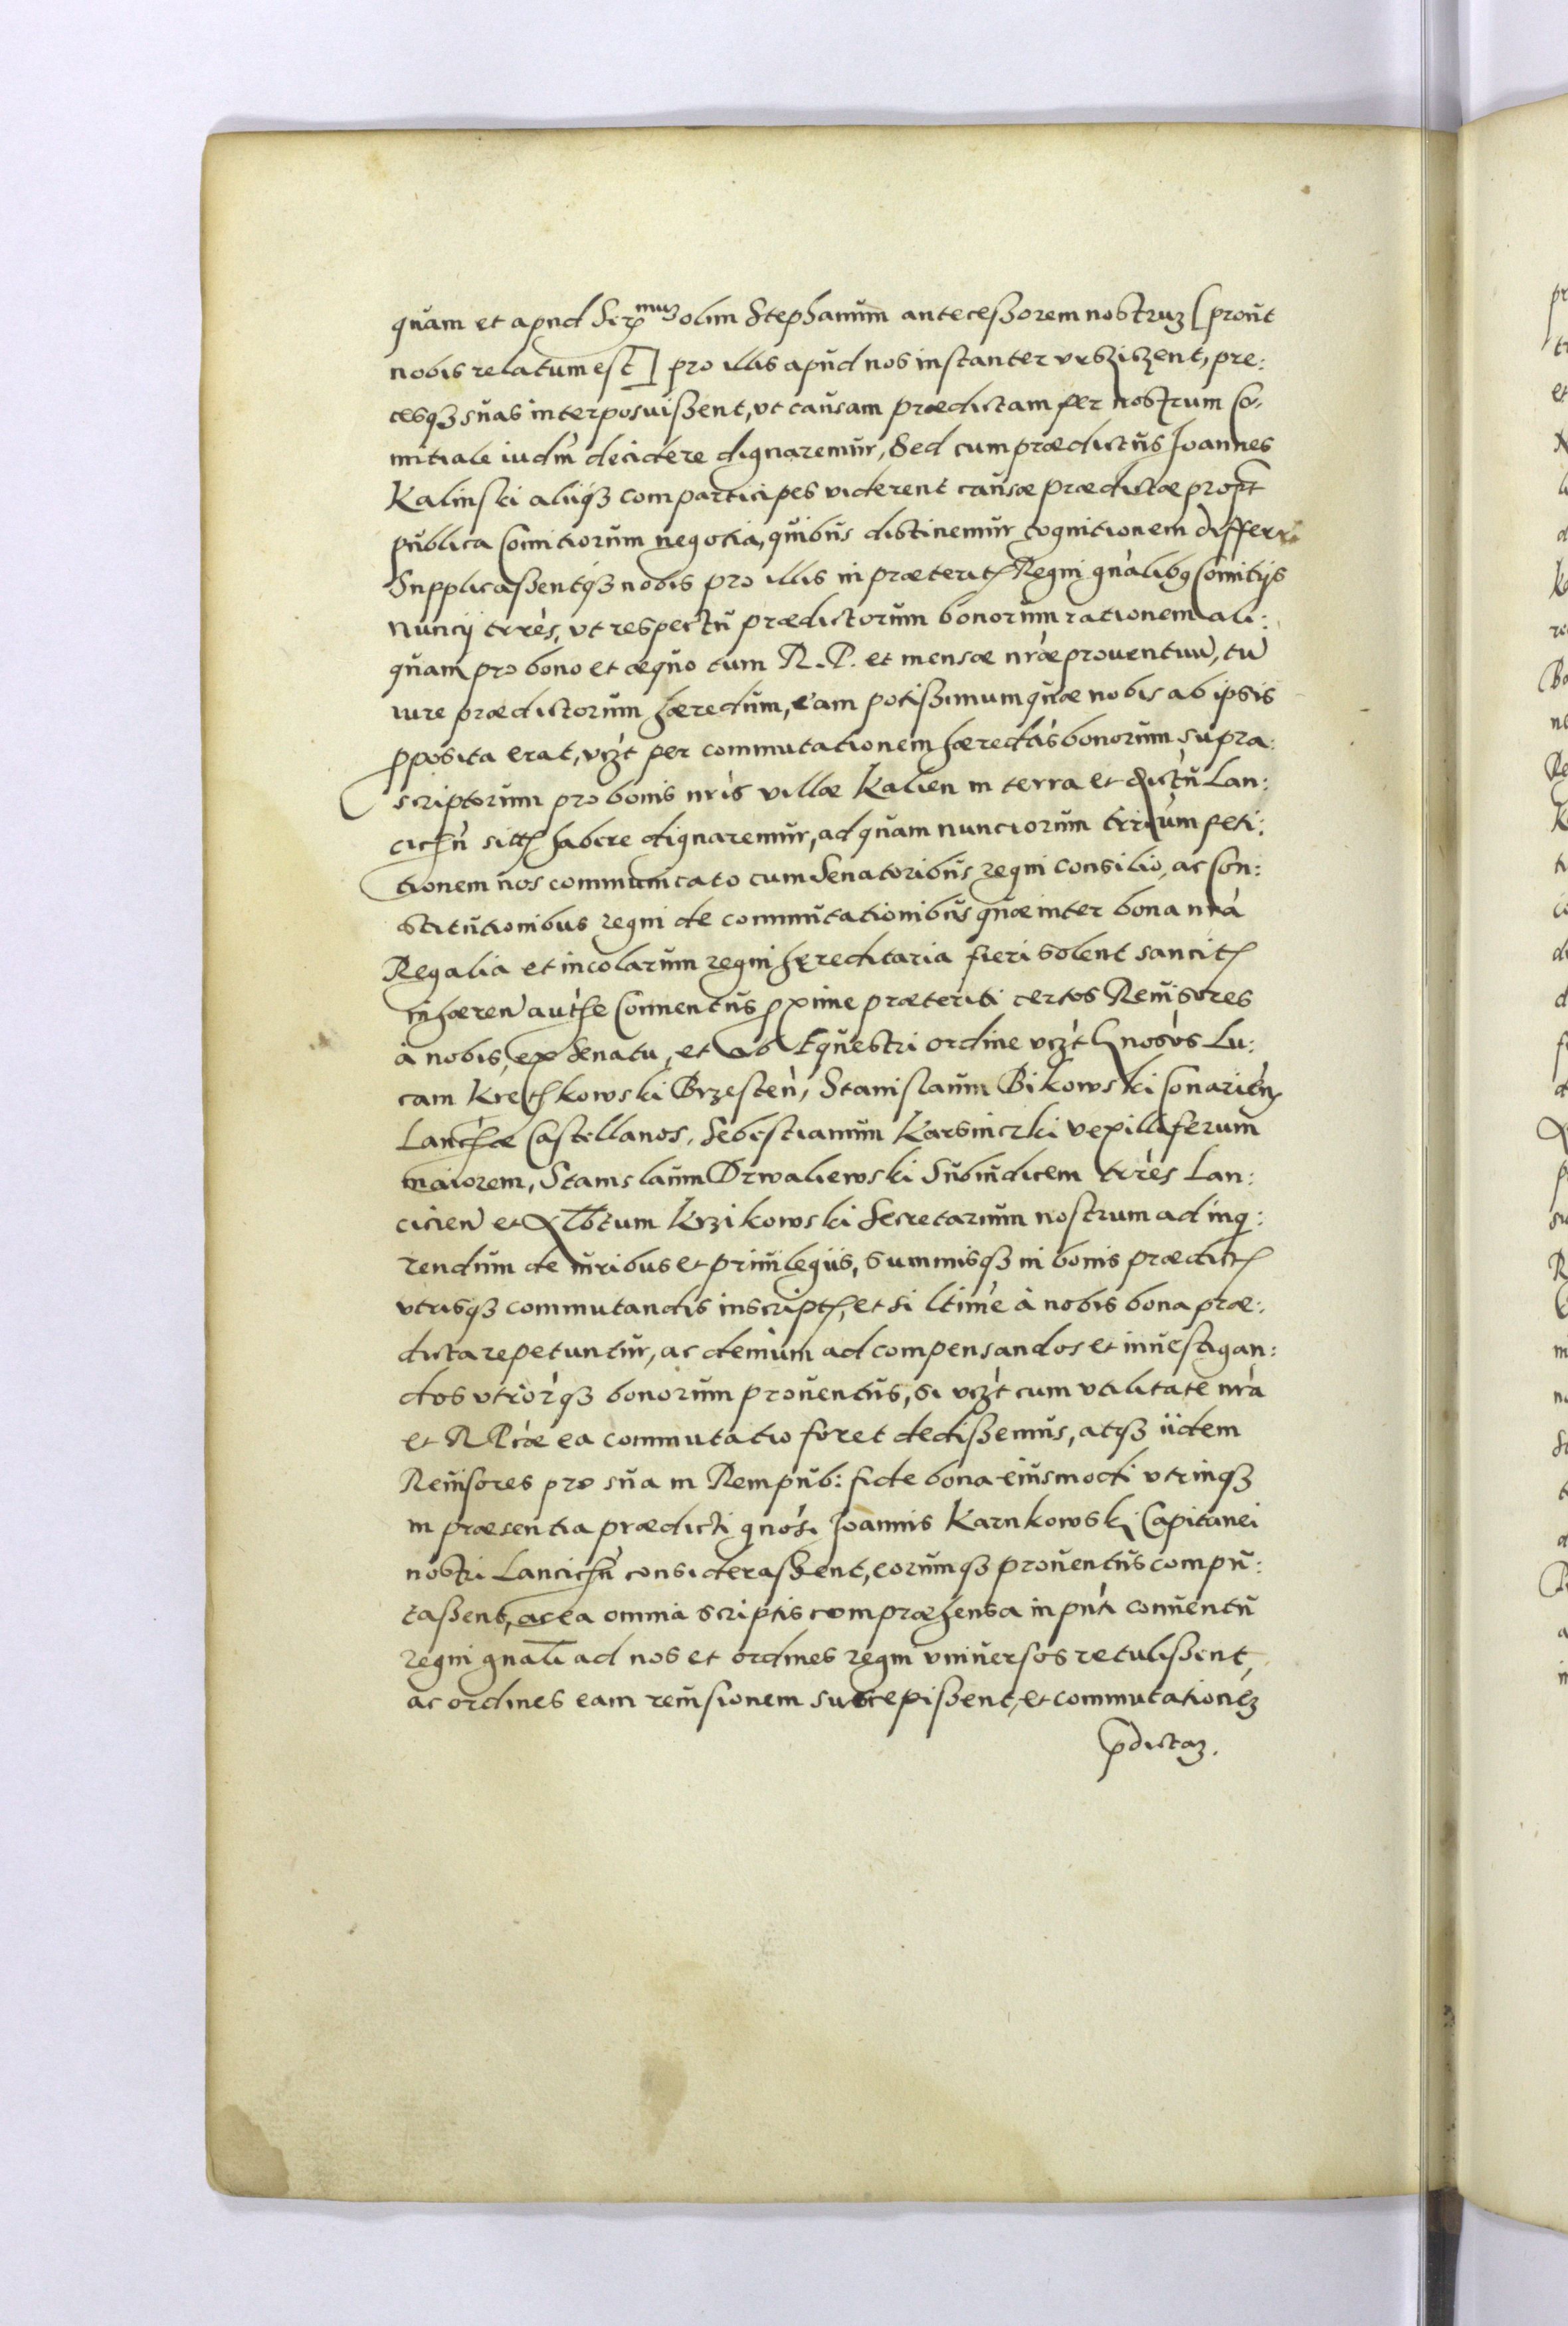 quam et apud Ser<sup>muʒ</sup> olim Stephanum antecessorem nostruʒ [prout
nobis relatum est] pro illis apud nos instanter urszissent, pre:
cesqʒ suas interposuissent, ut causam prædictam per nostrum Co:
mitiale iudm̄ decidere dignaremur, Sed cum prædictus Joannes
Kalinski aliiqʒ comparticipes viderent causæ prædictæ propt̄
publica Comitiorum negotia, quibus distinemur cognitionem differri
Supplicassentqʒ nobis pro illis in præterit. Regni gnàlibq Comitijs
nuncij trrès, ut respectu prædictorum bonorum rationem ali:
quam pro bono et æquo tum R. P. et mensæ nràe proventuu̇, tu̇
iure prædictorum hæredum, eam potissimum quæ nobis ab ipsis
ꝓposita erat, vrʒt per commutationem hæredtàs bonorum supra:
scriptorum pro bonis nrìs villæ Kalien in terra et dictu̇ Lan:
cicn̄ sitt. habere dignaremur, ad quam nunciorum trrium peti:
tionem nos communicato cum Senatoribus regni consilio, ac Con:
stitutionibus regni de commutationibus quæ inter bona nrà
Regalia et incolarum regni hereditaria fieri solent sancit.
inhæren̄ authe Conventus ꝓxime præteriti certos Revisores
à nobis, ex Senatu, et ab Equestri ordine vrʒt Gnosós Lu:
cam Kretkowski Brzesten̄, Stanislaum Bikowski Conarien.
Lanciæ Castellanos, Sebestianum Karsniczki vexilliferum
maiorem, Stanislaum Drwaliewski Subiudicem trrès Lan:
cicien̄ et Albtum Krzikowski Secretarium nostrum ad inq:
rendum de iuribus et privilegiis, summisqʒ in bonis prædict.
utrisqʒ commutandis inscript., et si ltime à nobis bona præ:
dicta repetuntur, ac demum ad compensandos et investigan:
dos utrorqʒ bonorum proventus, si vrʒt cum utilitate nrà
et R Pcæ ea commutatio foret dedissemus, atqʒ iidem
Revisores pro sua in Rempub: fide bona eiusmodi utrinqʒ
in præsentia prædicti gnósi Joannis Karnkowski Capitanei
nostri Lancicn̄ considerassent, eorumqʒ proventus compu:
tassent, ac ea omnia scriptis compræhensa in pn̄ti conventu
regni gnali ad nos et ordines regni universos retulissent,
ac ordines eam revisionem suscepissent, et commutationeʒ
p̄dictaʒ.